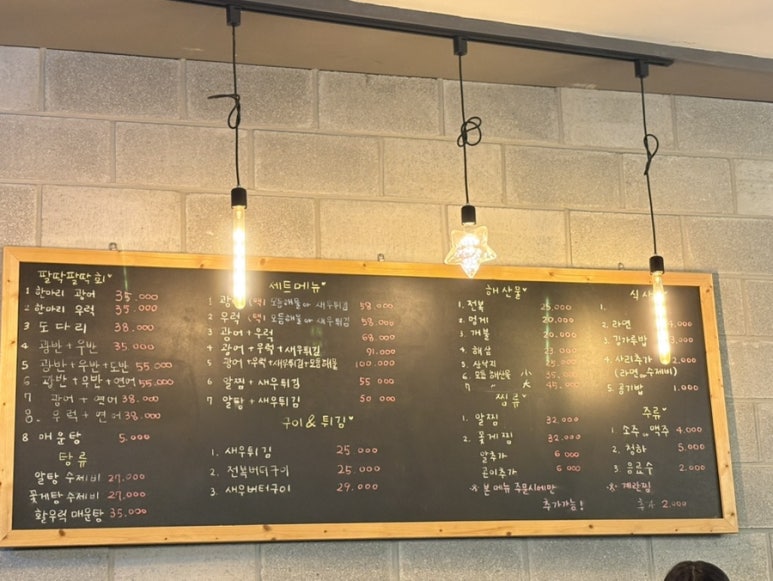 팔딱팔딱 회♥
1 한마리 광어 35.000
2 한마리 우럭 35.000
3 도다리 38.000
4 광반+우반 35.000
5 광반+우반+도반 55.000
6 광반+우반+연어 55.000
7 광어+연어 38.000
8. 우럭+연어 38.000
8 매운탕 5.000
탕류
알탕 수제비 27.000
꽃게탕 수제비 27.000
활우럭 매운탕 35.000
세트메뉴♥
1 광어 (택) 모듬해물 or 새우튀김 58.000
2 우럭 (택) 모듬해물 or 새우튀김 58.000
3 광어+우럭 68.000
4 광어+우럭+새우튀김 91.000
5 광어+우럭+새우튀김+모듬해물 100.000
6 알찜+새우튀김 55 000
7 알탕+새우튀김 50 000
구이&튀김♥
1. 새우튀김 25 000
2. 전복버터구이 25.000
3. 새우버터구이 29.000
해산물♥
1. 전복 25.000
2. 멍게 20.000
3. 개불 20.000
4. 해삼
5. 산낙지
6 모듬해산물 小 35.000
7 〃 大 45.000
찜류♥
1. 알찜 32.000
2. 꽃게찜 32.000
알추가 6 000
곤이추가 6 000
※ 본 메뉴 주문시에만
추가가능!
식사
1.
2. 라면 4.000
3. 김가루밥 3.000
4. 사리추가 2.000
(라면 or 수제비)
5. 공기밥 1.000
주류♥
1. 소주 or 맥주 4.000
2. 청하 5.000
3. 음료수 2.000
※ 계란찜
추가 2.000